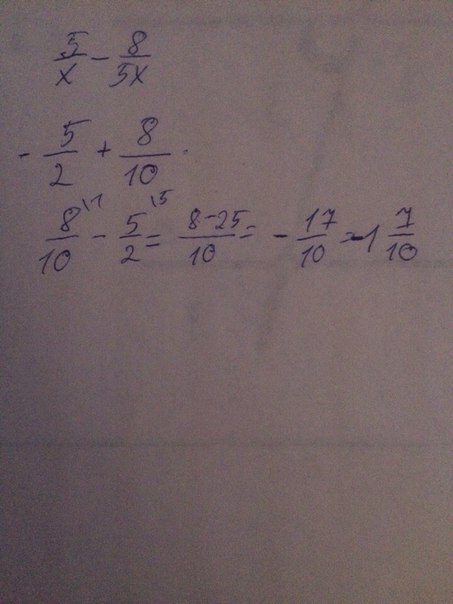 5/x - 8/5x
- 5/2 + 8/10
8\1/10 - 5\5/2 = 8-25/10 = - 17/10 = -1 7/10